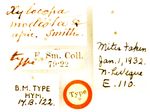 Xylocopa
modesta
type, Smith.
type
F. Sm. Coll.
79.22
B.M. TYPE
HYM.
17.B.122.
Type
Mites taken
Jan. 1, 1932.
N. LeVeque
E. 110.